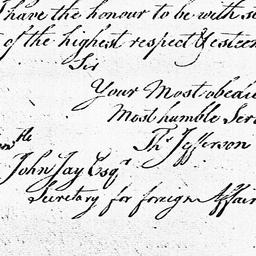 I have the honour to be with se
of the highest respect & esteem
Sir
Your Most obedi
Most humble Ser
Th: Jefferson
onble
John Jay Esqr
Secretary for foreign Affair